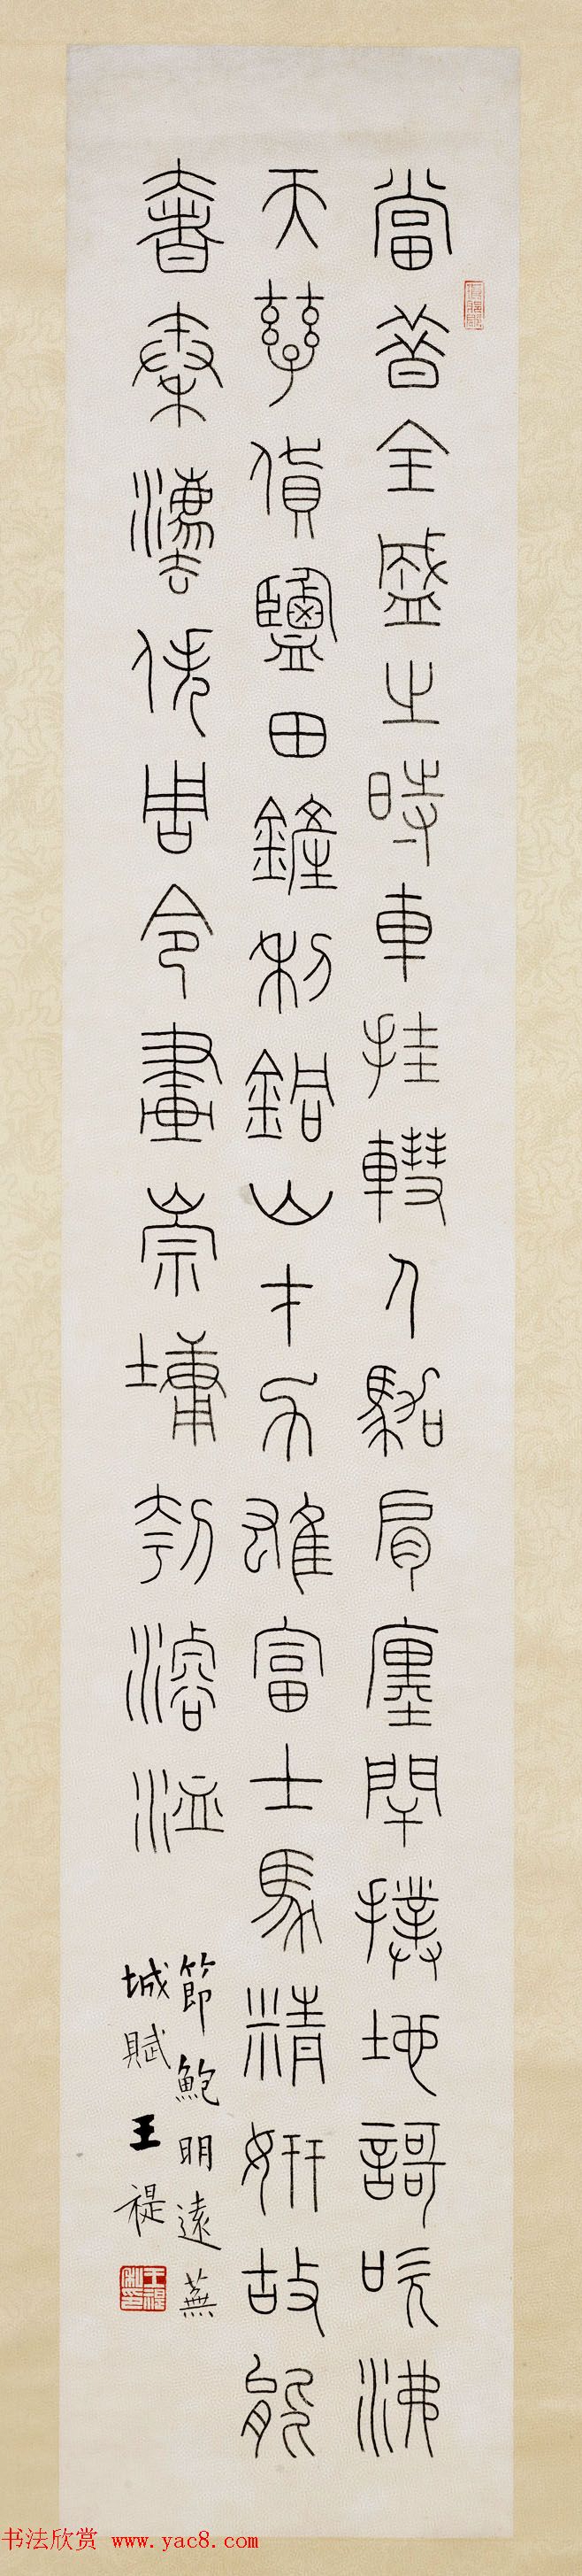 當昔全盛之時車挂轊人駕肩廛閈撲地謌吹沸
天孳貨鹽田鏟利銅山才力雄富士馬精妍故能
奢秦灋佚周令畫崇墉刳濬洫
節鮑明遠蕪
城賦 王禔
王禔私印
书法欣赏 www.yac8.com